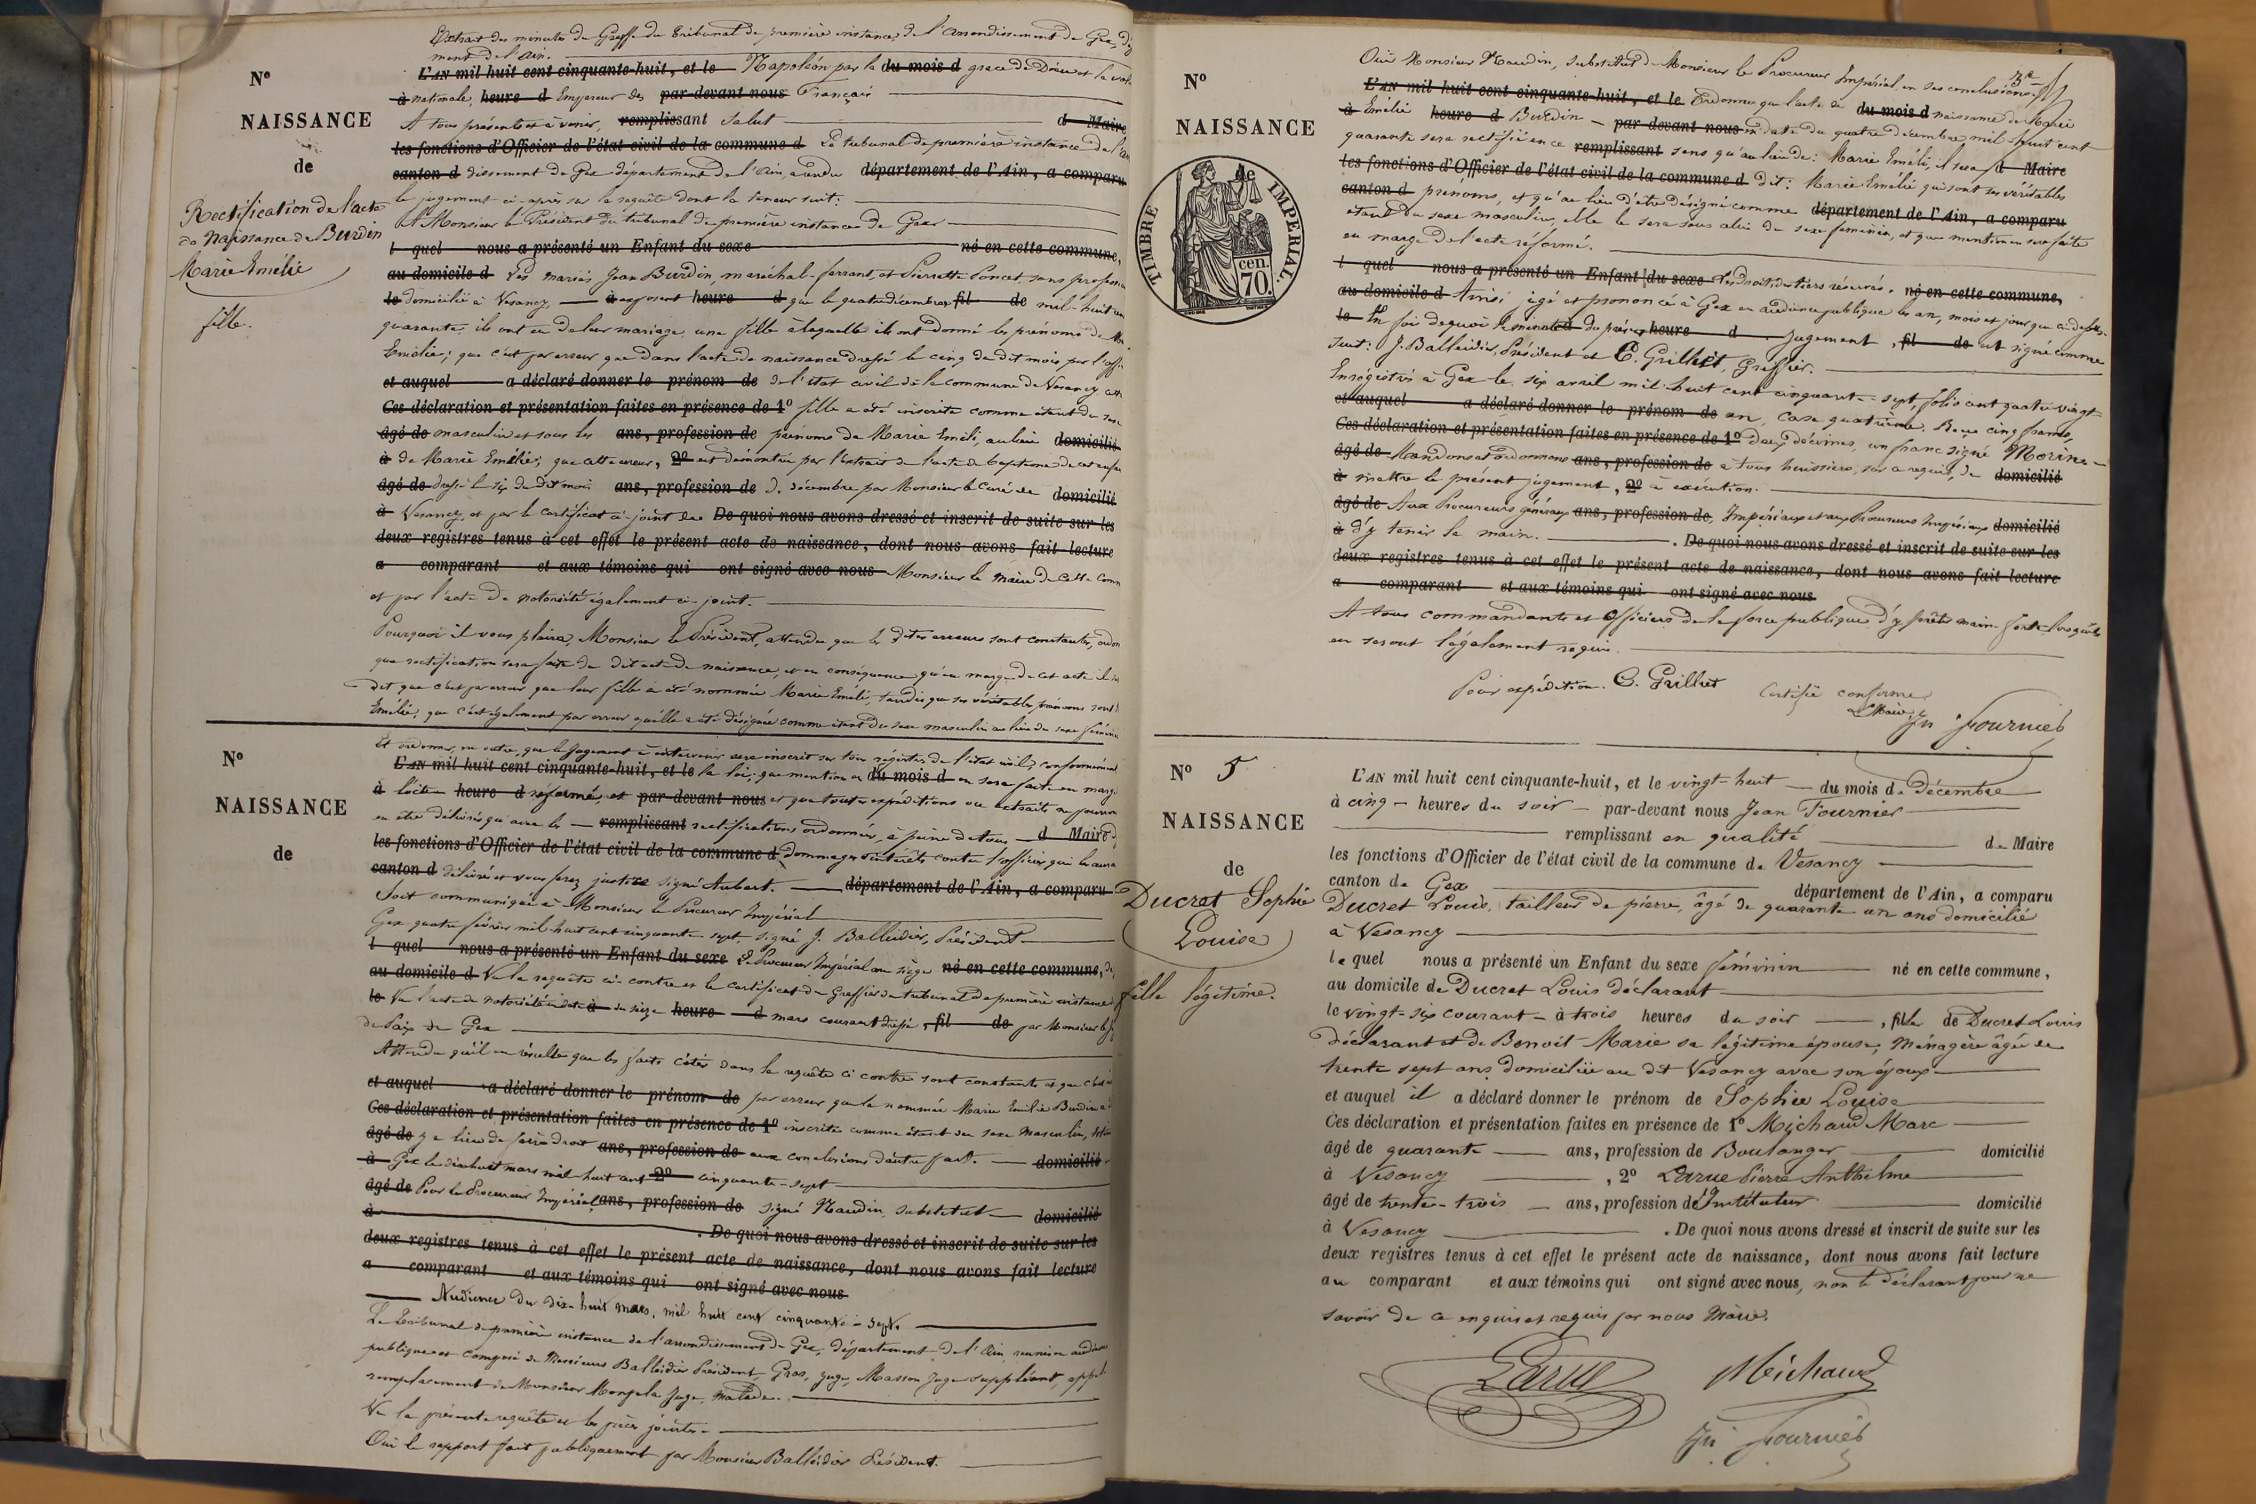 Extrait des minutes du Greffe du Tribunal de première instance de l'arrondissement de Gex, dé
ment de l'Ain.
L'AN mil huit cent cinquante-huit, et le Napoléon par la du mois d grace de Dieu et la vol
à nationale, heure d Empereur des par-devant nous Français
N°
NAISSANCE
de
Rectification de l'acte
de Naissance de Burdin
Marie Emélie
fille.
A tous présents et à venir, remplissant Salut d Maire
les fonctions d'Officier de l'état civil de la commune d Le tribunal de première instance de l'
canton d dissement de Gex département de l'Ain, a rendu département de l'Ain, a comparu
le jugement ci-après sur la requête dont la teneur suit:
A Monsieur le Président du tribunal de première instance de Gex
l quel nous a présenté un Enfant du sexe né en cette commune,
au domicile d Les mariés Jean Burdin, maréchal-ferrant, et Pierrette Poncet, sans profession
le domiciliés à Vesancy, à exposent heure d que le quatre décembre fil de mil-huit cent
quarante, ils ont eu de leur mariage une fille à laquelle ils ont donné les prénoms de
Emélie; que c'est par erreur que dans l'acte de naissance dressé le cinq du dit mois par l'offi
et auquel a déclaré donner le prénom de de l'état civil de la commune de Vesancy, cette
Ces déclaration et présentation faites en présence de 1° fille a été inscrite comme étant du sexe
âgé de masculin et sous les ans, profession de prénoms de Marie Eméli, au lieu domicilié
à de Marie Emélie; que cette erreur, 2° est démontrée par l'extrait de l'acte de baptême de cet enfan
âgé de dressé le six du dit mois ans, profession de de décembre par Monsieur le Curé de domicilié
à Vesancy, et par le certificat ci-joint de De quoi nous avons dressé et inscrit de suite sur les
deux registres tenus à cet effet le présent acte de naissance, dont nous avons fait lecture
a comparant et aux témoins qui ont signé avec nous Monsieur le Maire de cette Comm
et par l'acte de notoriété également ci-joint.
Pourquoi il vous plaira, Monsieur le Président, attendu que les dites erreurs sont constantes, ordon
que rectification sera faite du dit acte de naissance, et en conséquence qu'en marge de cet acte il
dit que c'est par erreur que leur fille a été nommée Marie Eméli, tandis que ses véritables prénoms sont
Emélie; que c'est également par erreur qu'elle a été désignée comme étant du sexe masculin au lieu du sexe féminin
N°
NAISSANCE
de
Et ordonner, en outre, que le Jugement à intervenir sera inscrit sur tous registres de l'état civil, conformément
L'AN mil huit cent cinquante-huit, et le la loi; que mention en du mois d en sera faite en marge
à l'acte heure d réformé, et par-devant nous et que toutes expéditions ou extraits ne pourron
en être délivrés qu'avec les remplissant rectifications ordonnées, à peine de tous d Maire
les fonctions d'Officier de l'état civil de la commune d dommages intérêts contre l'officier qui les aura
canton d délivrés et vous ferez justice signé Aubert. département de l'Ain, a comparu
Soit communiquée à Monsieur le Procureur Impérial
Gex quatre février mil-huit cent cinquante-sept, signé J. Balleidier, Président
l quel nous a présenté un Enfant du sexe Le Procureur Impérial au siège né en cette commune,
au domicile d Vu la requête ci-contre et le certificat du Greffier du tribunal de première instance
le Vu l'acte de notoriété en date à du seize heure d mars courant dressé, fil de par Monsieur le J
de Paix de Gex
Attendu qu'il en résulte que les faits cités dans la requête ci contre sont constants et que c'est
et auquel a déclaré donner le prénom de par erreur que la nommée Marie Emilie Burdin a
Ces déclaration et présentation faites en présence de 1° inscrite comme étant du sexe masculin,
âgé de y a lieu de faire droit ans, profession de aux conclusions d'autre part. domicilié
à Gex le dix huit mars mil huit cent 2° cinquante-sept
âgé de Pour le Procureur Impérial ans, profession de signé Naudin, substitut domicilié
à . De quoi nous avons dressé et inscrit de suite sur les
deux registres tenus à cet effet le présent acte de naissance, dont nous avons fait lecture
a comparant et aux témoins qui ont signé avec nous
Audience du dix-huit mars, mil huit cent cinquante-sept.
Le Tribunal de première instance de l'arrondissement de Gex, département de l'Ain, réuni en audience
publique et composé de Messieurs Balleidier Président, Gros, juge, Masson Juge suppléant, appel
remplacement de Monsieur Mongela Juge malade.
Vu la présente requête et les pièces jointes.
Oui le rapport fait publiquement par Monsieur Balleidier Président.
N°
NAISSANCE
de
TIMBRE IMPERIAL.
cen.
70.
Ouï Monsieur Naudin, substitut de Monsieur le Procureur Impérial en ses conclusions,
L'AN mil huit cent cinquante-huit, et le Ordonne que l'acte de du mois d naissance de Marie
à Emélie heure d Burdin par-devant nous en date du quatre décembre mil huit cent
quarante sera rectifié en ce remplissant sens qu'au lieu de: Marie Eméli, il sera d Maire
les fonctions d'Officier de l'état civil de la commune d dit: Marie Emélie qui sont ses véritables
canton d prénoms, et qu'au lieu d'être désigné comme département de l'Ain, a comparu
étant du sexe masculin, elle le sera sous celui du sexe féminin, et que mention en sera faite
en marge de l'acte réformé.
l quel nous a présenté un Enfant du sexe Les droits des tiers réservés. né en cette commune,
au domicile d Ainsi jugé et prononcé à Gex en audience publique les an, mois et jour que ci-dessus.
le En foi de quoi la minute du présent heure d Jugement, fil de est signé comme
suit: J. Balleidier, Président et C. Grilliet, Greffier.
Enrégistré à Gex le six avril mil-huit cent cinquante-sept, folio cent quatre vingt
et auquel a déclaré donner le prénom de un, case quatrième. Reçu cinq francs,
Ces déclaration et présentation faites en présence de 1° deux décimes, un franc signé Morin
âgé de Mandons et ordonnons ans, profession de à tous huissiers, sur ce requis, de domicilié
à mettre le présent jugement, 2° à exécution.
âgé de Aux Procureurs généraux ans, profession de Impériaux et aux Procureurs Impériaux domicilié
à d'y tenir la main. . De quoi nous avons dressé et inscrit de suite sur les
deux registres tenus à cet effet le présent acte de naissance, dont nous avons fait lecture
a comparant et aux témoins qui ont signé avec nous
A tous commandants et Officiers de la force publique d'y prêter main forte lorsqu'ils
en seront légalement requis.
Pour expédition. C. Grilliet
Certifié conforme
Le Maire,
Jn Fournier
N° 5
NAISSANCE
de
Ducret Sophie
Louise
fille légitime.
L'AN mil huit cent cinquante-huit, et le vingt-huit du mois de Décembre
à cinq heures du soir par-devant nous Jean Fournier
remplissant en qualité de Maire
les fonctions d'Officier de l'état civil de la commune de Vesancy
canton de Gex département de l'Ain, a comparu
Ducret Louis, tailleur de pierre, âgé de quarante un ans domicilié
à Vesancy
le quel nous a présenté un Enfant du sexe féminin né en cette commune,
au domicile de Ducret Louis déclarant
le vingt-six courant à trois heures du soir, fille de Ducret Louis
déclarant et de Benoit Marie sa légitime épouse, Ménagère âgée de
trente sept ans domiciliée au dit Vesancy avec son époux
et auquel il a déclaré donner le prénom de Sophie Louise
Ces déclaration et présentation faites en présence de 1° Michaud Marc
âgé de quarante ans, profession de Boulanger domicilié
à Vesancy, 2° Larue Pierre Anthelme
âgé de trente-trois ans, profession d'Instituteur domicilié
à Vesancy . De quoi nous avons dressé et inscrit de suite sur les
deux registres tenus à cet effet le présent acte de naissance, dont nous avons fait lecture
au comparant et aux témoins qui ont signé avec nous, non le déclarant pour ne
savoir de ce enquis et requis par nous Maire.
Larue Michaud
Jn Fournier